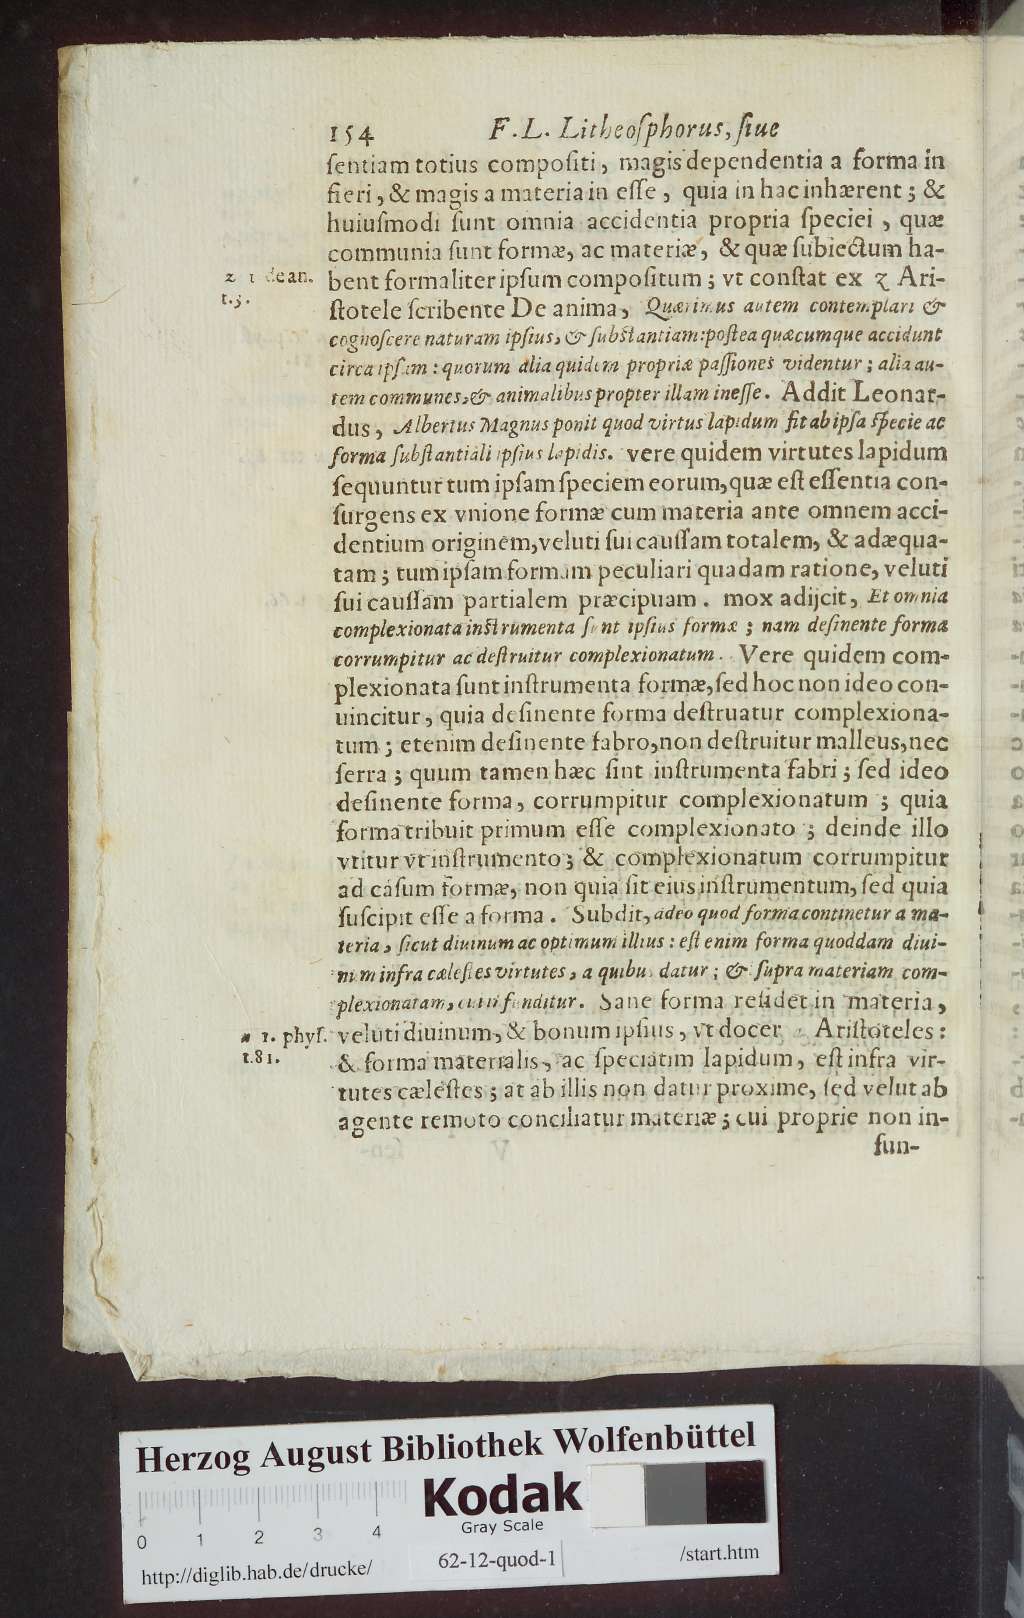 154 F. L. Litheoſphorus, ſiue
ſentiam totius compoſiti, magis dependentia a forma in
fieri, & magis a materia in eſſe, quia in hac inhærent; &
huiuſmodi ſunt omnia accidentia propria ſpeciei, quæ
communia ſunt formæ, ac materiæ, & quæ ſubiectum ha-
z 1 de an.
t.3.
bent formaliter ipſum compoſitum; vt conſtat ex z Ari-
ſtotele ſcribente De anima, Quærimus autem contemplari &
cognoſcere naturam ipſius, & ſubſtantiam: poſtea quæcumque accidunt
circa ipſam: quorum alia quidem propriæ paſſiones videntur; alia au-
tem communes, & animalibus propter illam ineſſe. Addit Leonar-
dus, Albertus Magnus ponit quod virtus lapidum fit ab ipſa ſpecie ac
forma ſubſtantiali ipſius lapidis. vere quidem virtutes lapidum
ſequuntur tum ipſam ſpeciem eorum, quæ eſt eſſentia con-
ſurgens ex vnione formæ cum materia ante omnem acci-
dentium originem, veluti ſui cauſſam totalem, & adæqua-
tam; tum ipſam formam peculiari quadam ratione, veluti
ſui cauſſam partialem præcipuam. mox adijcit, Et omnia
complexionata inſtrumenta ſunt ipſius formæ; nam deſinente forma
corrumpitur ac deſtruitur complexionatum. Vere quidem com-
plexionata ſunt inſtrumenta formæ, ſed hoc non ideo con-
uincitur, quia deſinente forma deſtruatur complexiona-
tum; etenim deſinente fabro, non deſtruitur malleus, nec
ſerra; quum tamen hæc ſint inſtrumenta fabri; ſed ideo
deſinente forma, corrumpitur complexionatum; quia
forma tribuit primum eſſe complexionato; deinde illo
vtitur vt inſtrumento; & complexionatum corrumpitur
ad caſum formæ, non quia ſit eius inſtrumentum, ſed quia
ſuſcipit eſſe a forma. Subdit, adeo quod forma continetur a ma-
teria, ſicut diuinum ac optimum illius: eſt enim forma quoddam diui-
num infra cæleſtes virtutes, a quibus datur; & ſupra materiam com-
plexionatam, cui infunditur. Sane forma reſidet in materia,
a 1. phyſ.
t.81.
veluti diuinum, & bonum ipſius, vt docet a Ariſtoteles:
& forma materialis, ac ſpeciatim lapidum, eſt infra vir-
tutes cæleſtes; at ab illis non datur proxime, ſed velut ab
agente remoto conciliatur materiæ; cui proprie non in-
fun-
Herzog August Bibliothek Wolfenbüttel
Kodak
Gray Scale
0 1 2 3 4
http://diglib.hab.de/drucke/ 62-12-quod-1 /start.htm